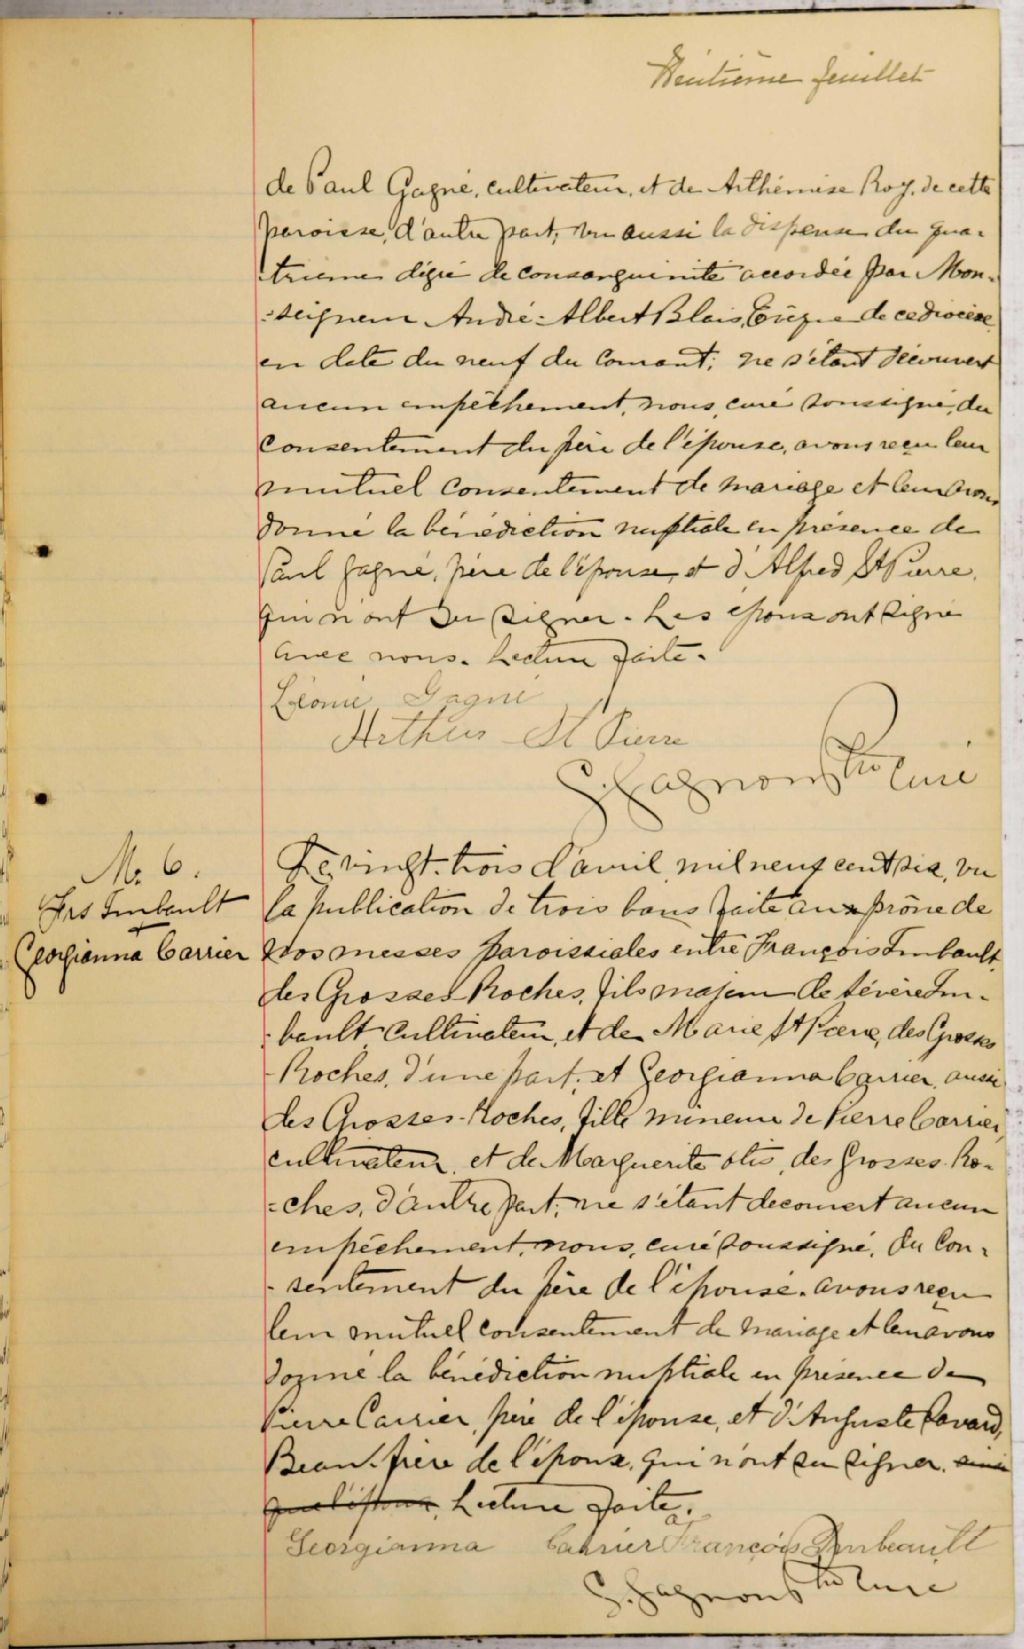 Huitième feuillet
de Paul Gagné, cultivateur, et de Arthémise Roy, de cette
paroisse, d'autre part; vu aussi la dispense du qua-
trième dégré de consanguinité accordée par Mon-
-seigneur André-Albert Blais, Evêque de ce diocèse
en date du neuf du courant; ne s'étant découvert
aucun empêchement, nous, curé soussigné, du
consentement du père de l'épouse, avons reçu leur
mutuel consentement de mariage et leur avons
donné la bénédiction nuptiale en présence de
Paul Gagné, père de l'épouse, et d'Alfred St Pierre,
qui n'ont su signer. Les époux ont signé
avec nous. Lecture faite.
Léonie Gagné
Arthur St Pierre
G. Gagnon Ptre Curé
M. 6.
Frs Imbault
Georgianna Carrier
Le vingt-trois d'avril mil neuf cent six, vu
la publication de trois bans faite au prône de
nos messes paroissiales entre François Imbault,
des Grosses-Roches, fils majeur de Sévère Im-
-bault cultivateur, et de Marie St Pierre, des Grosses
-Roches, d'une part; et Georgianna Carrier, aussi
des Grosses-Roches, fille mineure de Pierre Carrier,
cultivateur, et de Marguerite Otis, des Grosses-Ro-
-ches, d'autre part; ne s'étant decouvert aucun
empêchement, nous, curé soussigné, du con-
-sentement du père de l'épouse, avons reçu
leur mutuel consentement de mariage et leur avons
donné la bénédiction nuptiale en présence de
Pierre Carrier, père de l'épouse, et d'Auguste Savard,
Beau-frère de l'époux, qui n'ont su signer, ainsi
que l'époux, Lecture faite.
Georgianna Carrier François Imbeault
G. Gagnon Ptre Curé